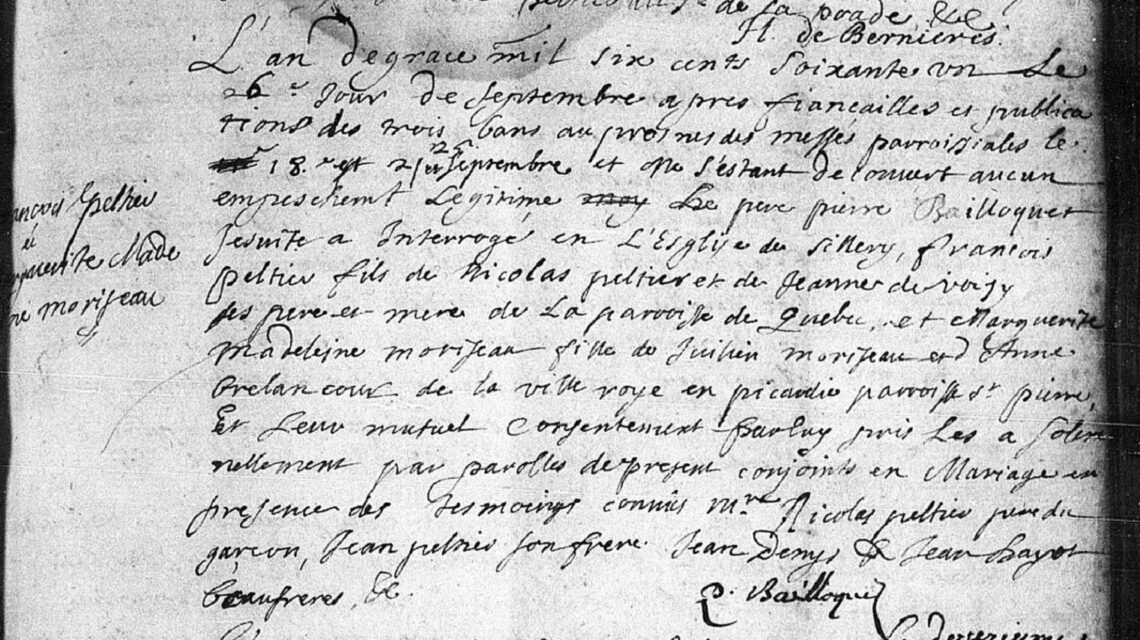 de la poade &c
H. de Bernieres.
L'an de grace mil six cents soixante un Le
26.e Jour de Septembre apres fiançailles et publica
tions des trois bans au prosnes des messes parroissiales le
18.e et 21 25 Septembre et ne s'estant decouvert aucun
empeschemt Legitime Le pere pierre Bailloquet
Jesuite a Interrogé en L'Esglise de Sillery, François
Peltier fils de Nicolas peltier et de Jeanne de voisy
ses pere et mere de La parroisse de Quebec, et Marguerite
Madeleine moriseau fille de Juilien moriseau et d'Anne
Brelancour de la ville roye en picardie parroisse St pierre,
Et Leur mutuel Consentement par luy pris Les a Solen
nellement par parolles de present conjoints en Mariage en
presence des Tesmoings connus Nicolas peltier pere du
garçon, Jean peltier son frere Jean Denys & Jean hayot
beaufreres, &c.
P. Bailloquet
ançois Peltier
et
rguerite Made
ne moriseau